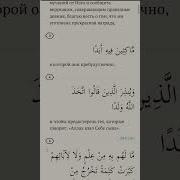 мучений от Него и сообщить
верующим, совершающим праведные
деяния, благую весть о том, что им
уготована прекрасная награда,
مَّاكِثِينَ فِيهِ أَبَدًا
в которой они пребудут вечно,
وَيُنذِرَ الَّذِينَ قَالُوا اتَّخَذَ
اللَّهُ وَلَدًا
и чтобы предостеречь тех, которые
говорят: «Аллах взял Себе сына».
مَّا لَهُم بِهِ مِنْ عِلْمٍ وَلَا لِآبَائِهِمْ ۚ
كَبُرَتْ كَلِمَةً تَخْرُجُ مِنْ